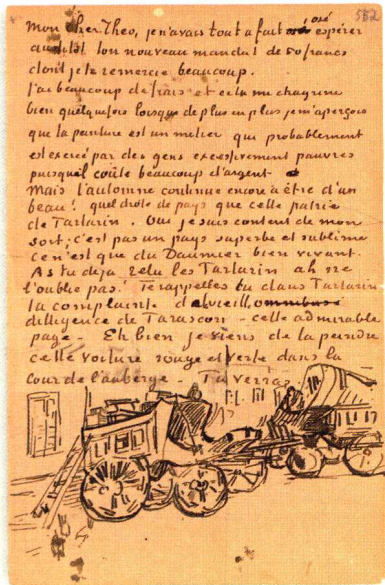 552
Mon cher Theo, je n'avais tout a fait osé espérer
aussitot ton nouveau mandat de 50 francs
dont je te remercie beaucoup.
J'ai beaucoup de frais et cela me chagrine
bien quelquefois lorsque de plus en plus je m'aperçois
que la peinture est un metier qui probablement
est exercé par des gens excessivement pauvres
puisqu'il coûte beaucoup d'argent
Mais l'automne continue encore à être d'un
beau! quel drole de pays que cette patrie
de Tartarin. Oui je suis content de mon
sort, c'est pas un pays superbe et sublime
ce n'est que du Daumier bien vivant.
As tu deja relu les Tartarin ah ne
l'oublie pas. Te rappelles tu dans Tartarin
la complainte de la vieille
dilligence de Tarascon – cette admirable
page. Eh bien je viens de la peindre
cette voiture rouge et verte dans la
cour de l'auberge – Tu verras